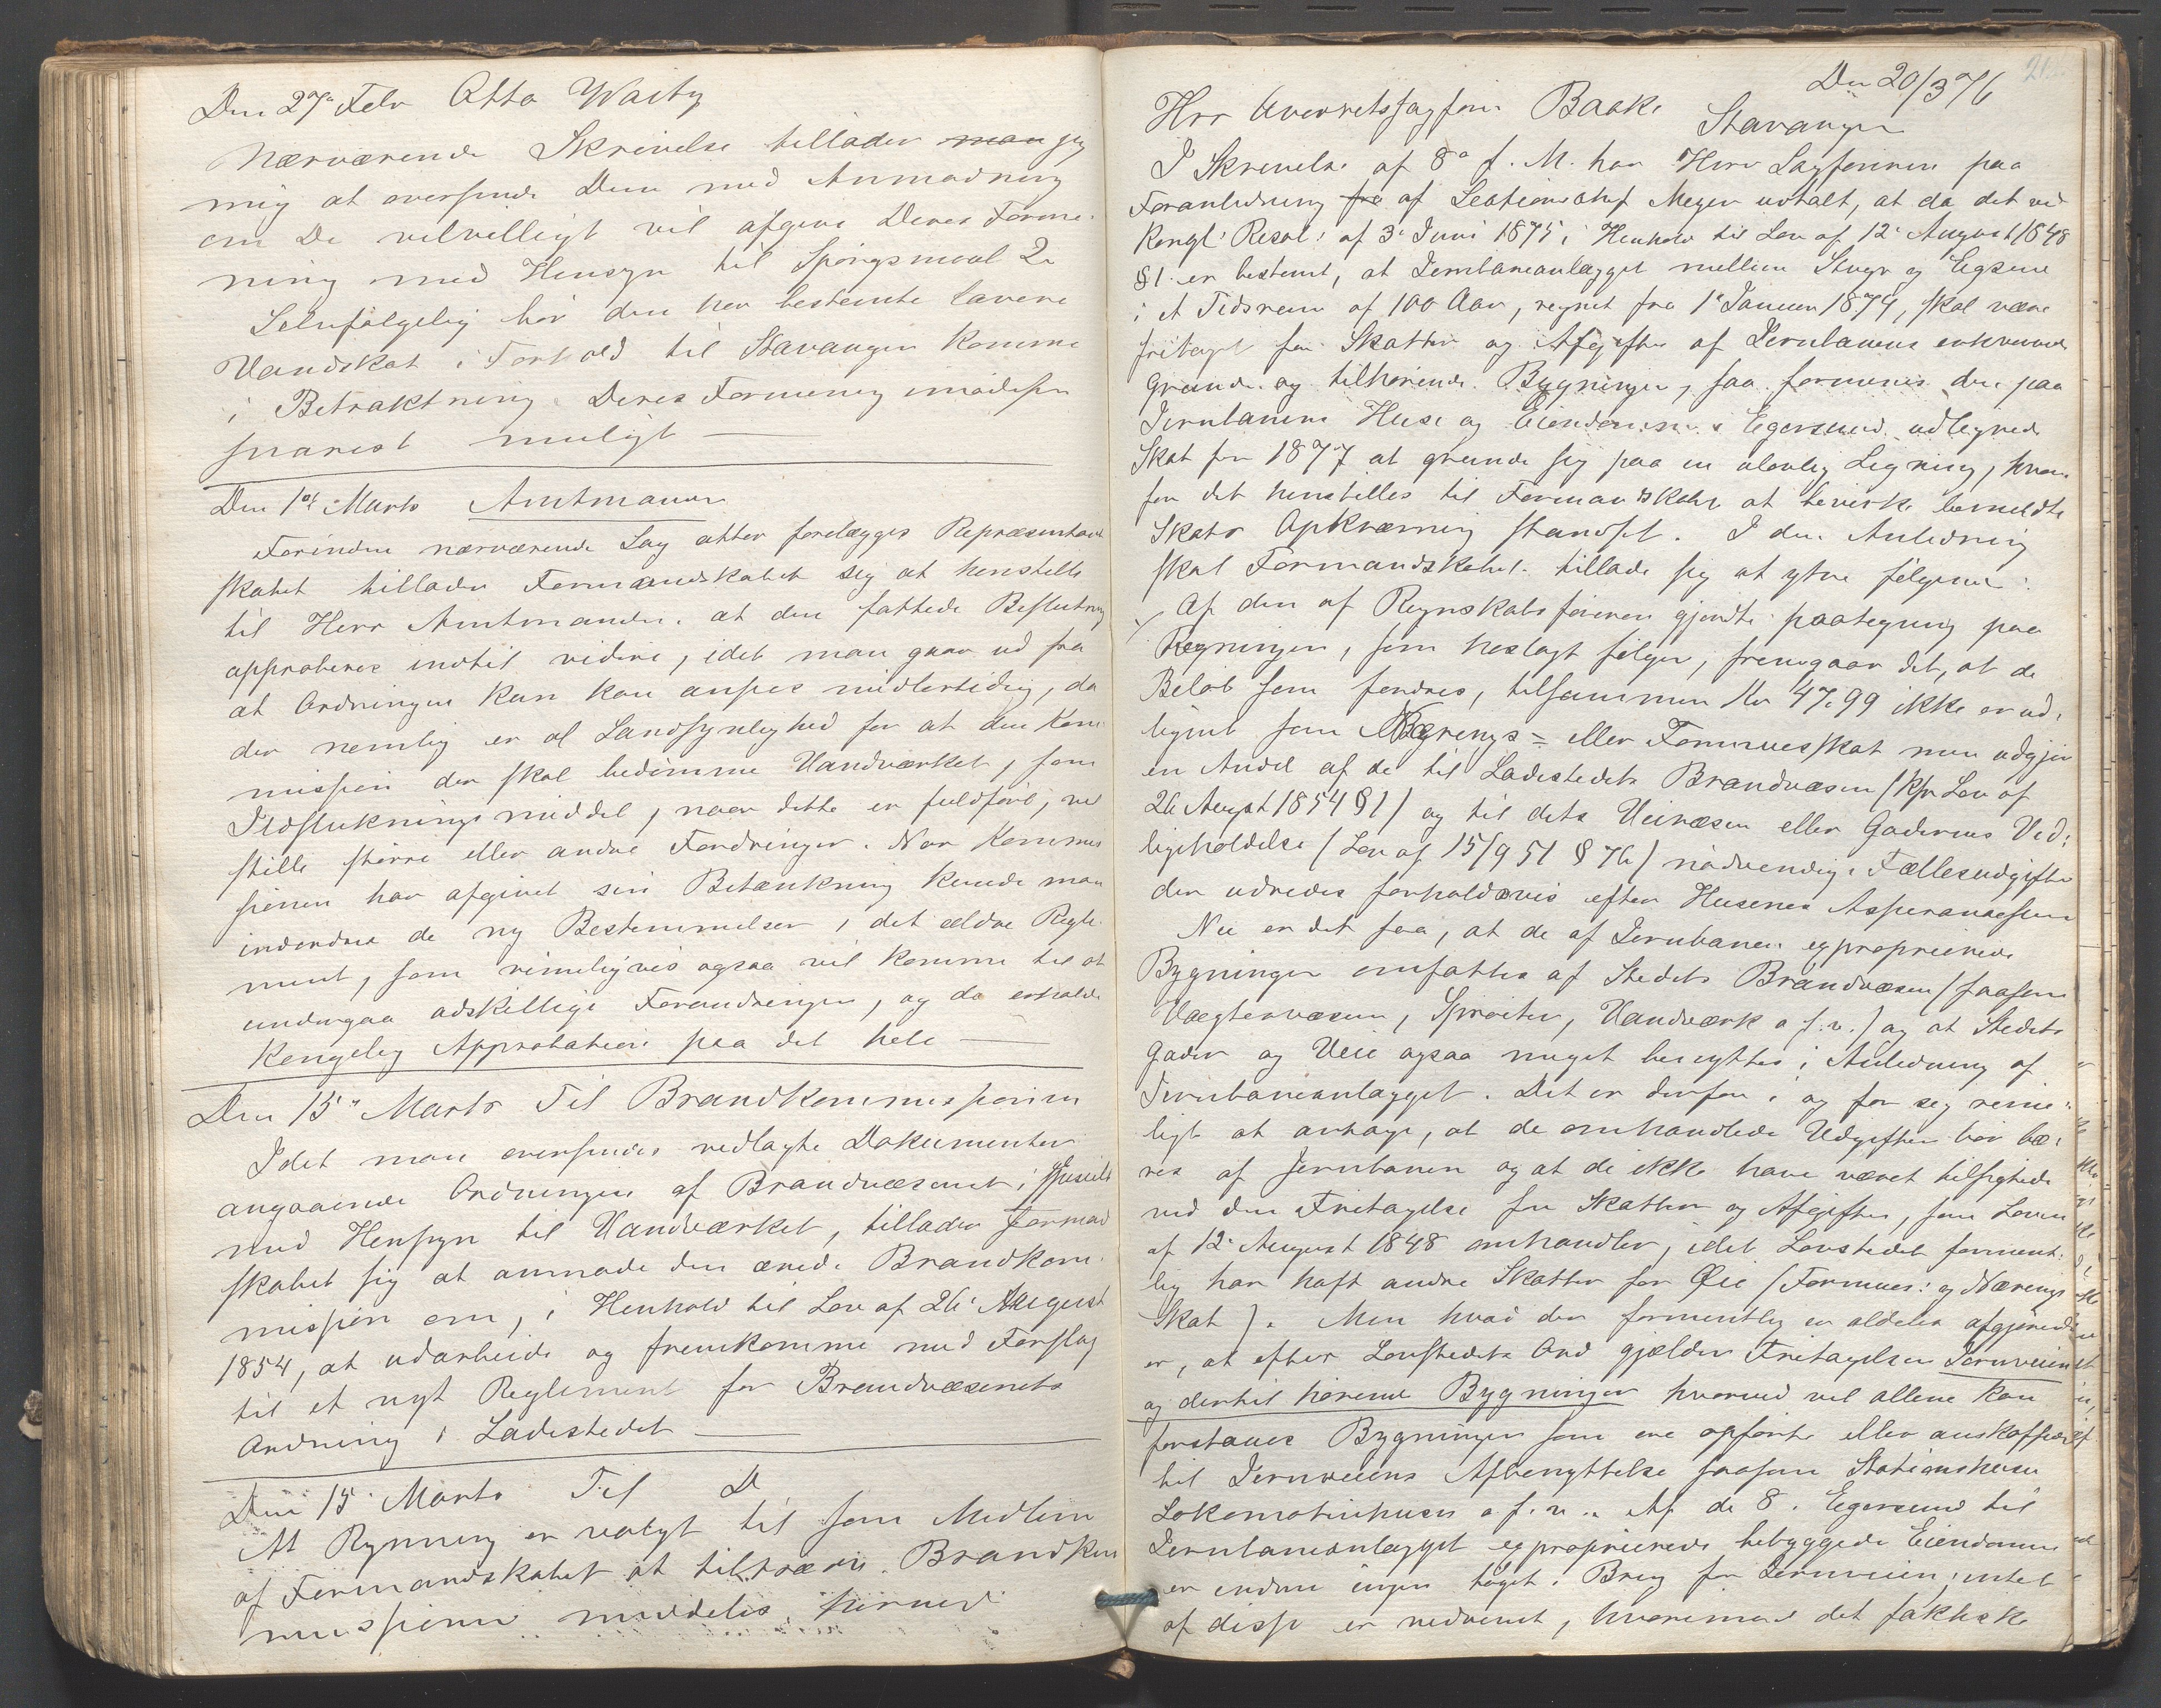 Den 27de Febr Otto Waity
Nærværende Skrivelse tillader man jeg
mig at oversende Dem med Anmodning
om De velvilligt vil afgive Deres Forme-
ning med Hensyn til Spörgsmaal 2.
Selvfølgelig bör den her bestemte lavere
Vandskat i Forhold til Stavanger komme
i Betraktning. Deres Formening imödesees
snarest muligt
Den 1ste Marts Amtmanden
Forinden nærværende Sag atter forelægges Repræsentant
skabet tillader Formandskabet sig at henstille
til Herr Amtmanden, at den fattede Beslutning
approberes indtil videre, idet man gaar ud fra
at Ordningen kun kan ansees midlertidig, da
der nemlig er al Sandsynlighed for at den Kom-
mission der skal bedömme Vandværket, som
Ildslukningsmiddel, naar dette er fuldfört, vil
stille större eller andre Fordringer. Naar Kommis
sionen har afgivet sin Betænkning kunde man
indordne de ny Bestemmelser i det ældre Regle-
ment, som rimeligvis ogsaa vil komme til at
undergaa adskillige Forandringer, og da erholde
Kongelig Approbation paa det hele
Den 15de Marts Til Brandkommissionen
Idet man oversender vedlagte Dokumenter
angaaende Ordningen af Brandvæsenet, specielt
med Hensyn til Vandværket, tillader Formand
skabet sig at anmode den ærede Brandkom-
mission om, i Henhold til Lov af 26de August
1854, at udarbeide og fremkomme med Forslag
til et nyt Reglement for Brandvæsenets
Ordning i Ladestedet
Den 15de Marts Til D
At Rynning er valgt til som Medlem
af Formandskabet at tiltræde Brandkom
missionen meddeles herved
Den 20/3 76
Herr Overretssagförer Bakke Stavanger
I Skrivelse af 8de d. M. har Herr Sagföreren paa
Foranledning fra af Sectionschef Meyer udtalt, at da det ved
Kongl: Resol: af 3de Juni 1875 i Henhold til Lov af 12te August 1848
§ 1. er bestemt, at Jernbaneanlægget mellem Stvgr og Egsund
i et Tidsrum af 100 Aar, regnet fra 1ste Januar 1874, skal være
fritaget for Skatter og Afgifter af Jernbanens erhvervede
Grunde og tilhörende Bygninger, saa formenes den paa
Jernbanens Huse og Eiendomme i Egersund udlignede
Skat for 1877 at grunde sig paa en ulovlig Ligning, hvor-
for det henstilles til Formandskabet at bevirke bemeldte
Skats Opkrævning standset. I den Anledning
skal Formandskabet tillade sig at ytre fölgende:
Af den af Regnskabsföreren gjordte paategning paa
Regningen, som heslagt fölger, fremgaar det, at de
Belöb som fordres, tilsammen Kr 47,99 ikke er ud-
lignet som Nærings- eller Formuesskat men udgjör
en Andel af de til Ladestedets Brandvæsen (kfr Lov af
26 August 1854 § 1) og til dets Veivæsen eller Gadernes Ved-
ligeholdelse (Lov af 15/9 51 § 76) nödvendige Fællesudgifter
der udredes forholdsvis efter Husenes Assurancesum
Nu er det saa, at de af Jernbanen expropriërede
Bygninger omfattes af Stedets Brandvæsen (saasom
Vægtervæsen, Spröiter, Vandværk o. s. v.) og at Stedets
Gader og Veie ogsaa meget benyttes i Anledning af
Jernbaneanlægget. Det er derfor i og for sig rime-
ligt at antage, at de omhandlede Udgifter bör bæ-
res af Jernbanen og at de ikke have været tilsigtede
ved den Fritagelse for Skatter og Afgifter, som Loven
af 12te August 1848 omhandler, idet Lovstedet forment-
lig har haft andre Skatter for Øie (Formues: og Nærings
Skat). Men hvad der formentlig er aldeles afgjörende
er, at efter Lovstedets Ord gjælder Fritagelsen Jernveien
og dertil hörende Bygninger hvorved vel allene kan
forstaaes Bygninger som ere opförte eller anskaffede
til Jernveiens Afbenyttelse saasom Stationshuse
Lokomotivhuse o. s. v. Af de 8 i Egersund til
Jernbaneanlægget expropriërede bebyggede Eiendomme
er endnu ingen taget i Brug for Jernveien; intet
af disse er nedrevet, hvorimod det faktiske